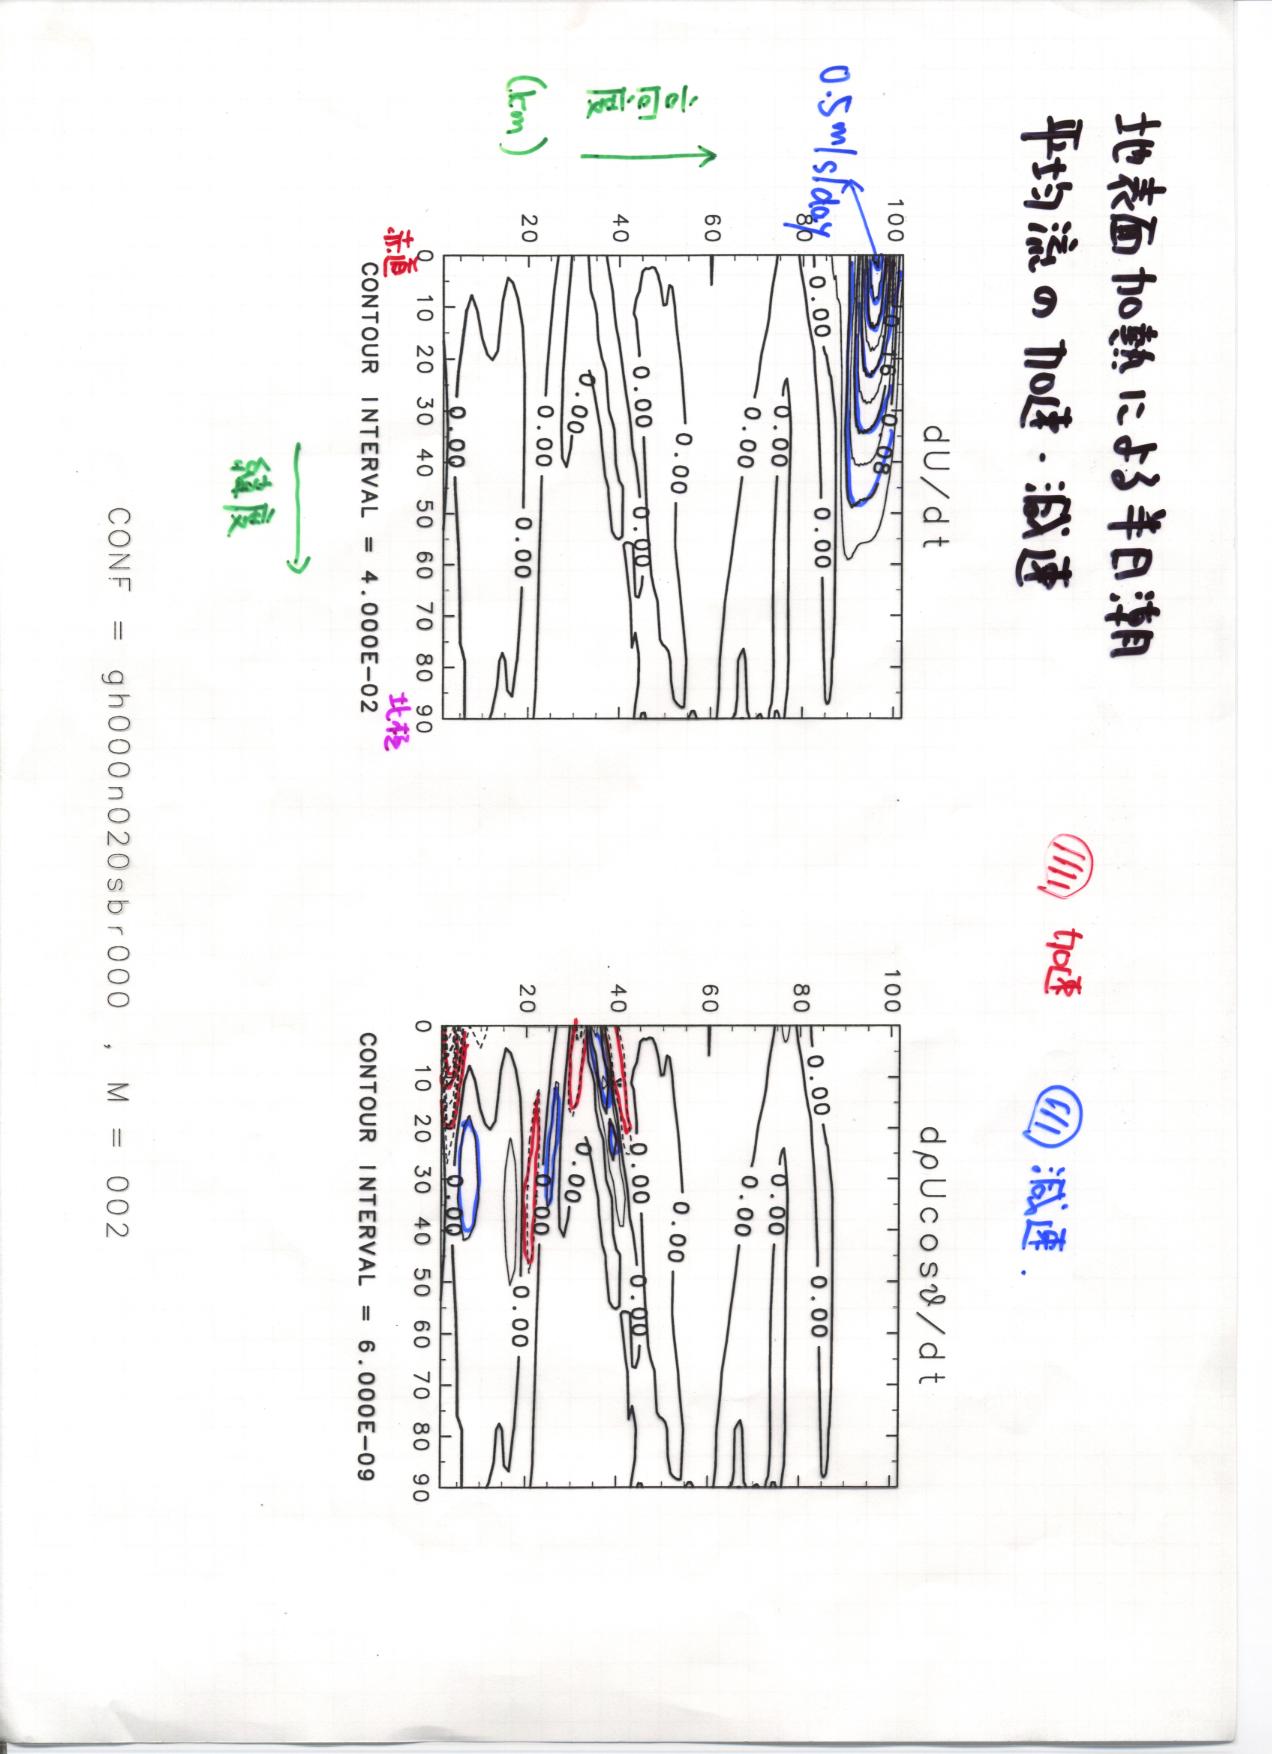 地表面加熱による半日潮
平均流の加速・減速
加速
減速.
0.5m/s/day
dU/dt
dρUcosϑ/dt
高度
(km)
100
80
60
40
20
0.00
0.00
0.00
0.00
0.00
0.00
0.00
0.00
0.00
0.00
0.00
0.00
0.08
0 10 20 30 40 50 60 70 80 90
赤道
北極
CONTOUR INTERVAL = 4.000E-02
緯度
100
80
60
40
20
0.00
0.00
0.00
0.00
0.00
0.00
0.00
0.00
0.00
0.00
0 10 20 30 40 50 60 70 80 90
CONTOUR INTERVAL = 6.000E-09
CONF = gh000n020sbr000 , M = 002